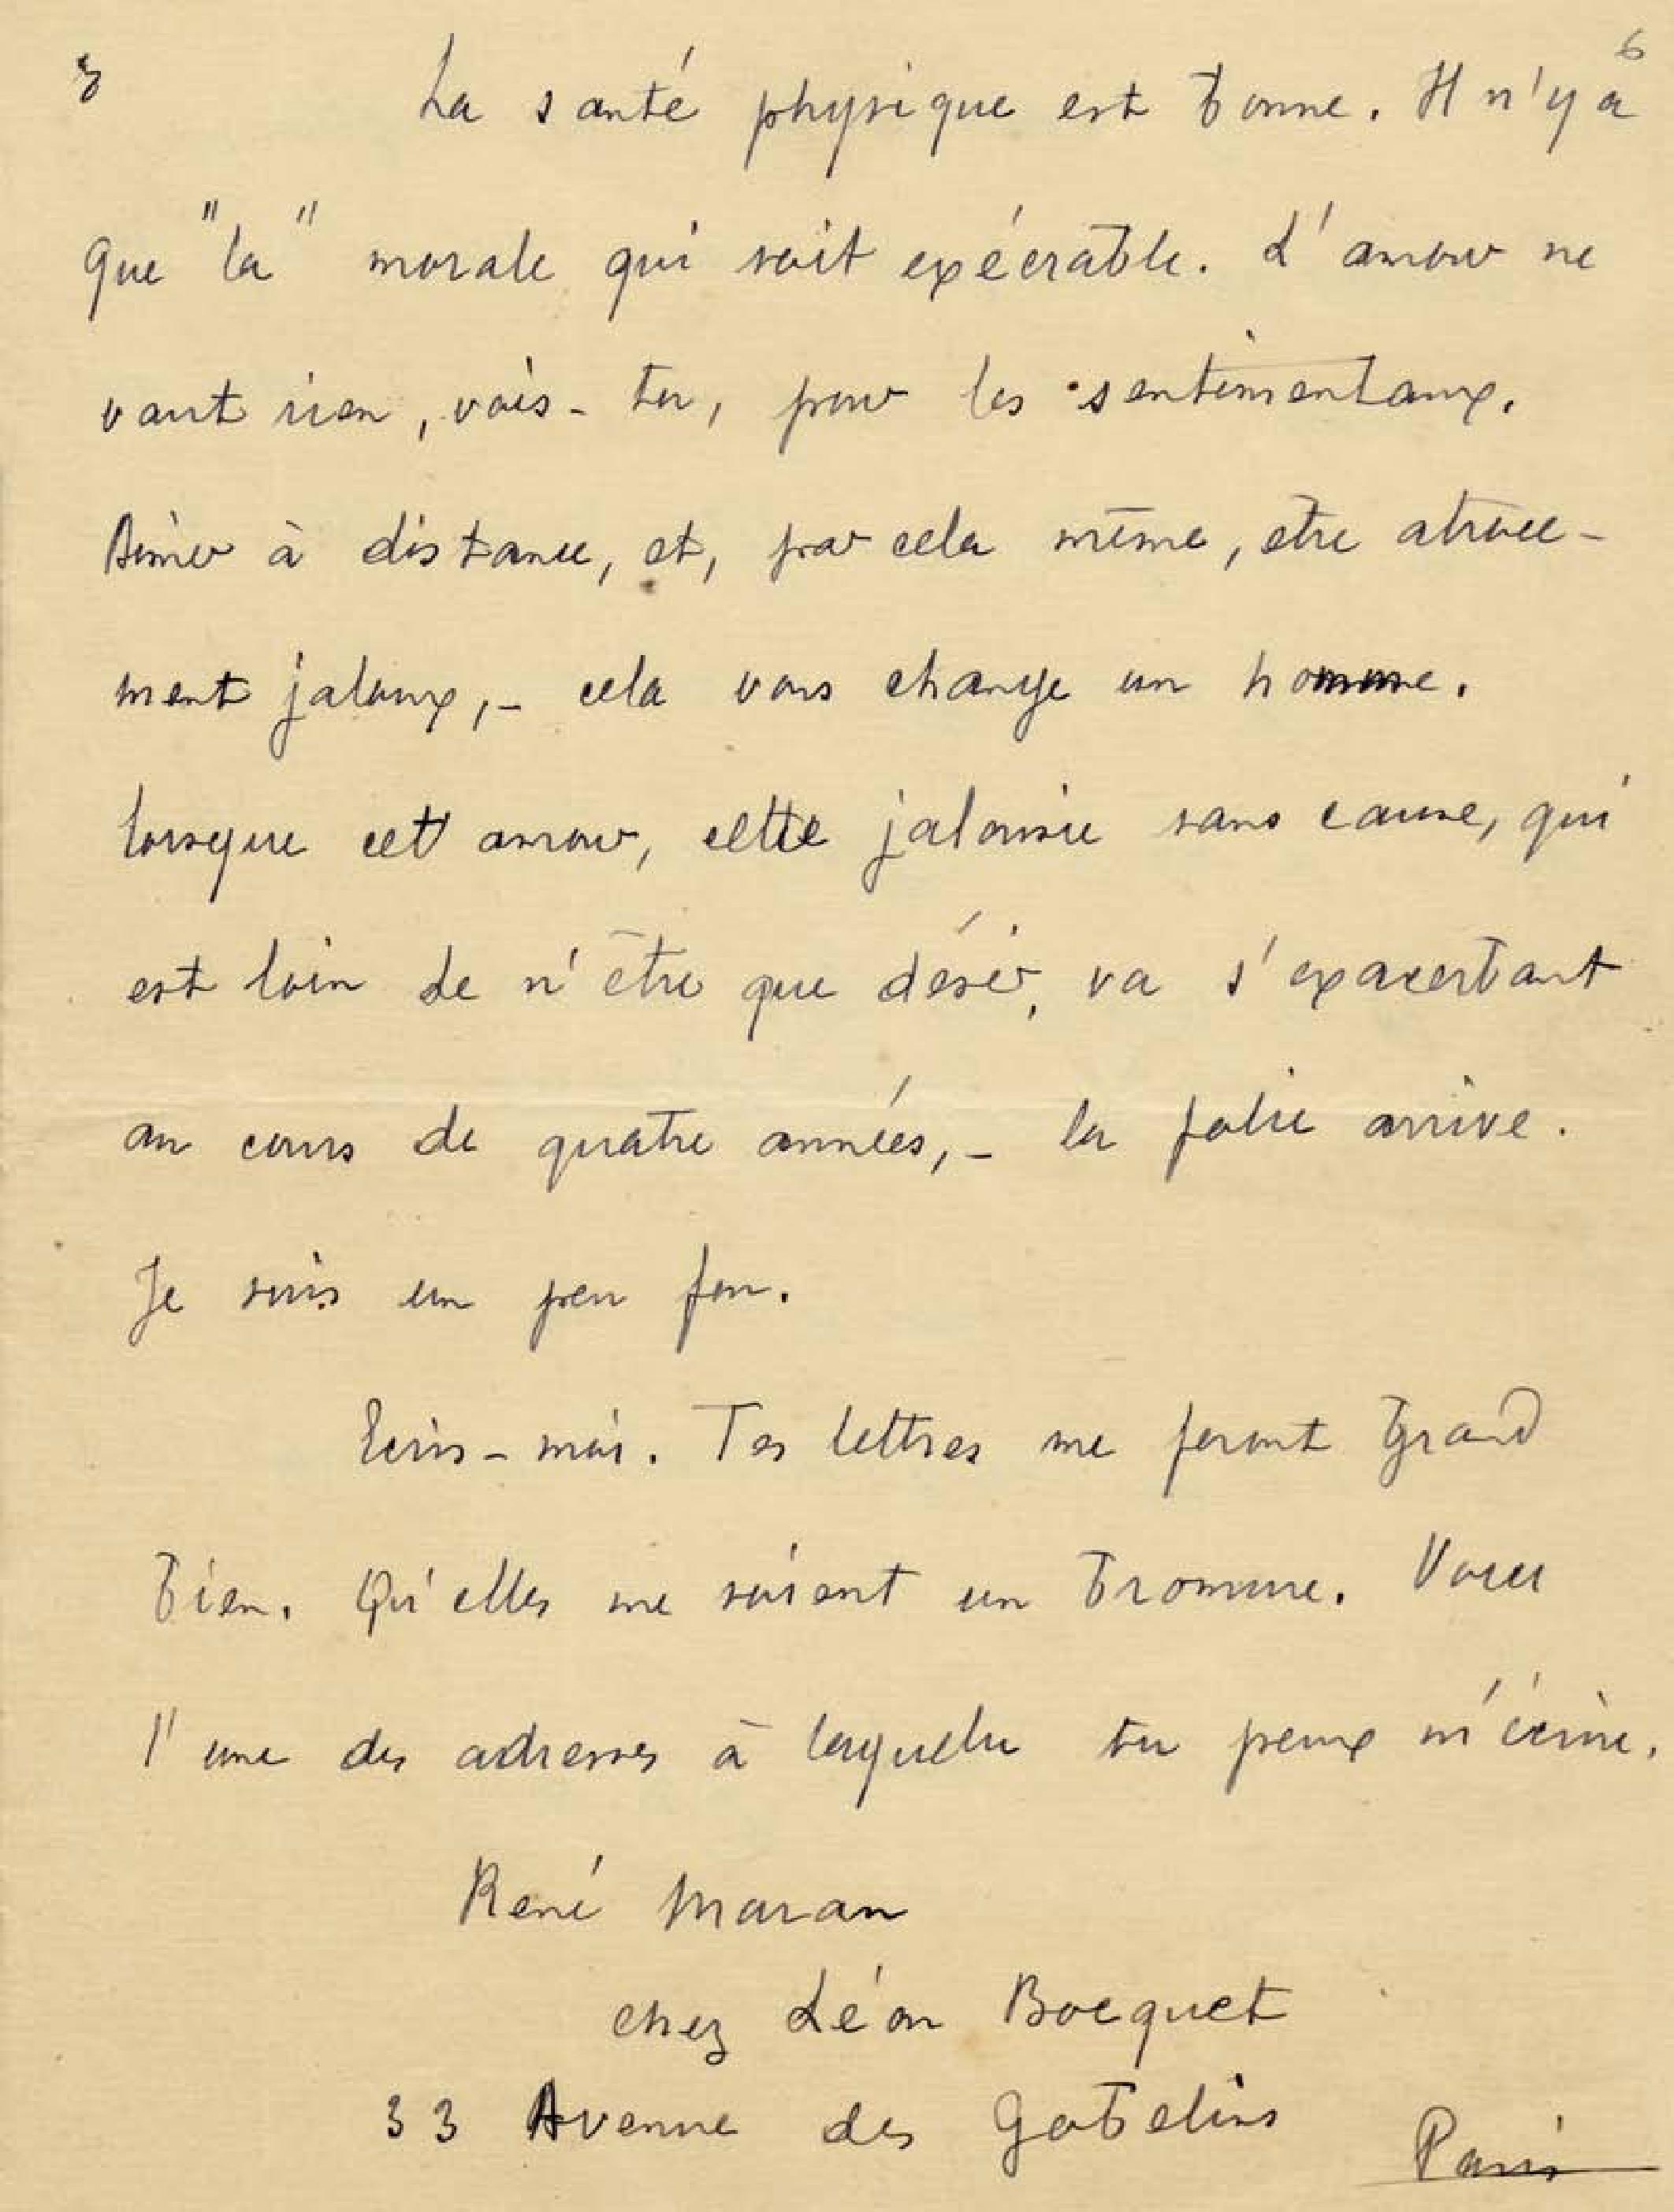 3 6
La santé physique est bonne. Il n'y a
que "la" morale qui soit exécrable. L'amour ne
vaut rien, vois-tu, pour les sentimentaux.
Aimer à distance, et, par cela même, être atroce-
ment jaloux,- cela vous change un homme.
Lorsque cet amour, cette jalousie sans cause, qui
est loin de n'être que désir, va s'exacerbant
au cours de quatre années,- la folie arrive.
Je suis un peu fou.
Ecris-moi. Tes lettres me feront grand
bien. Qu'elles me soient un bromure. Voici
l'une des adresses à laquelle tu peux m'écrire.
René Maran
chez Léon Bocquet
33 Avenue des Gobelins
Paris